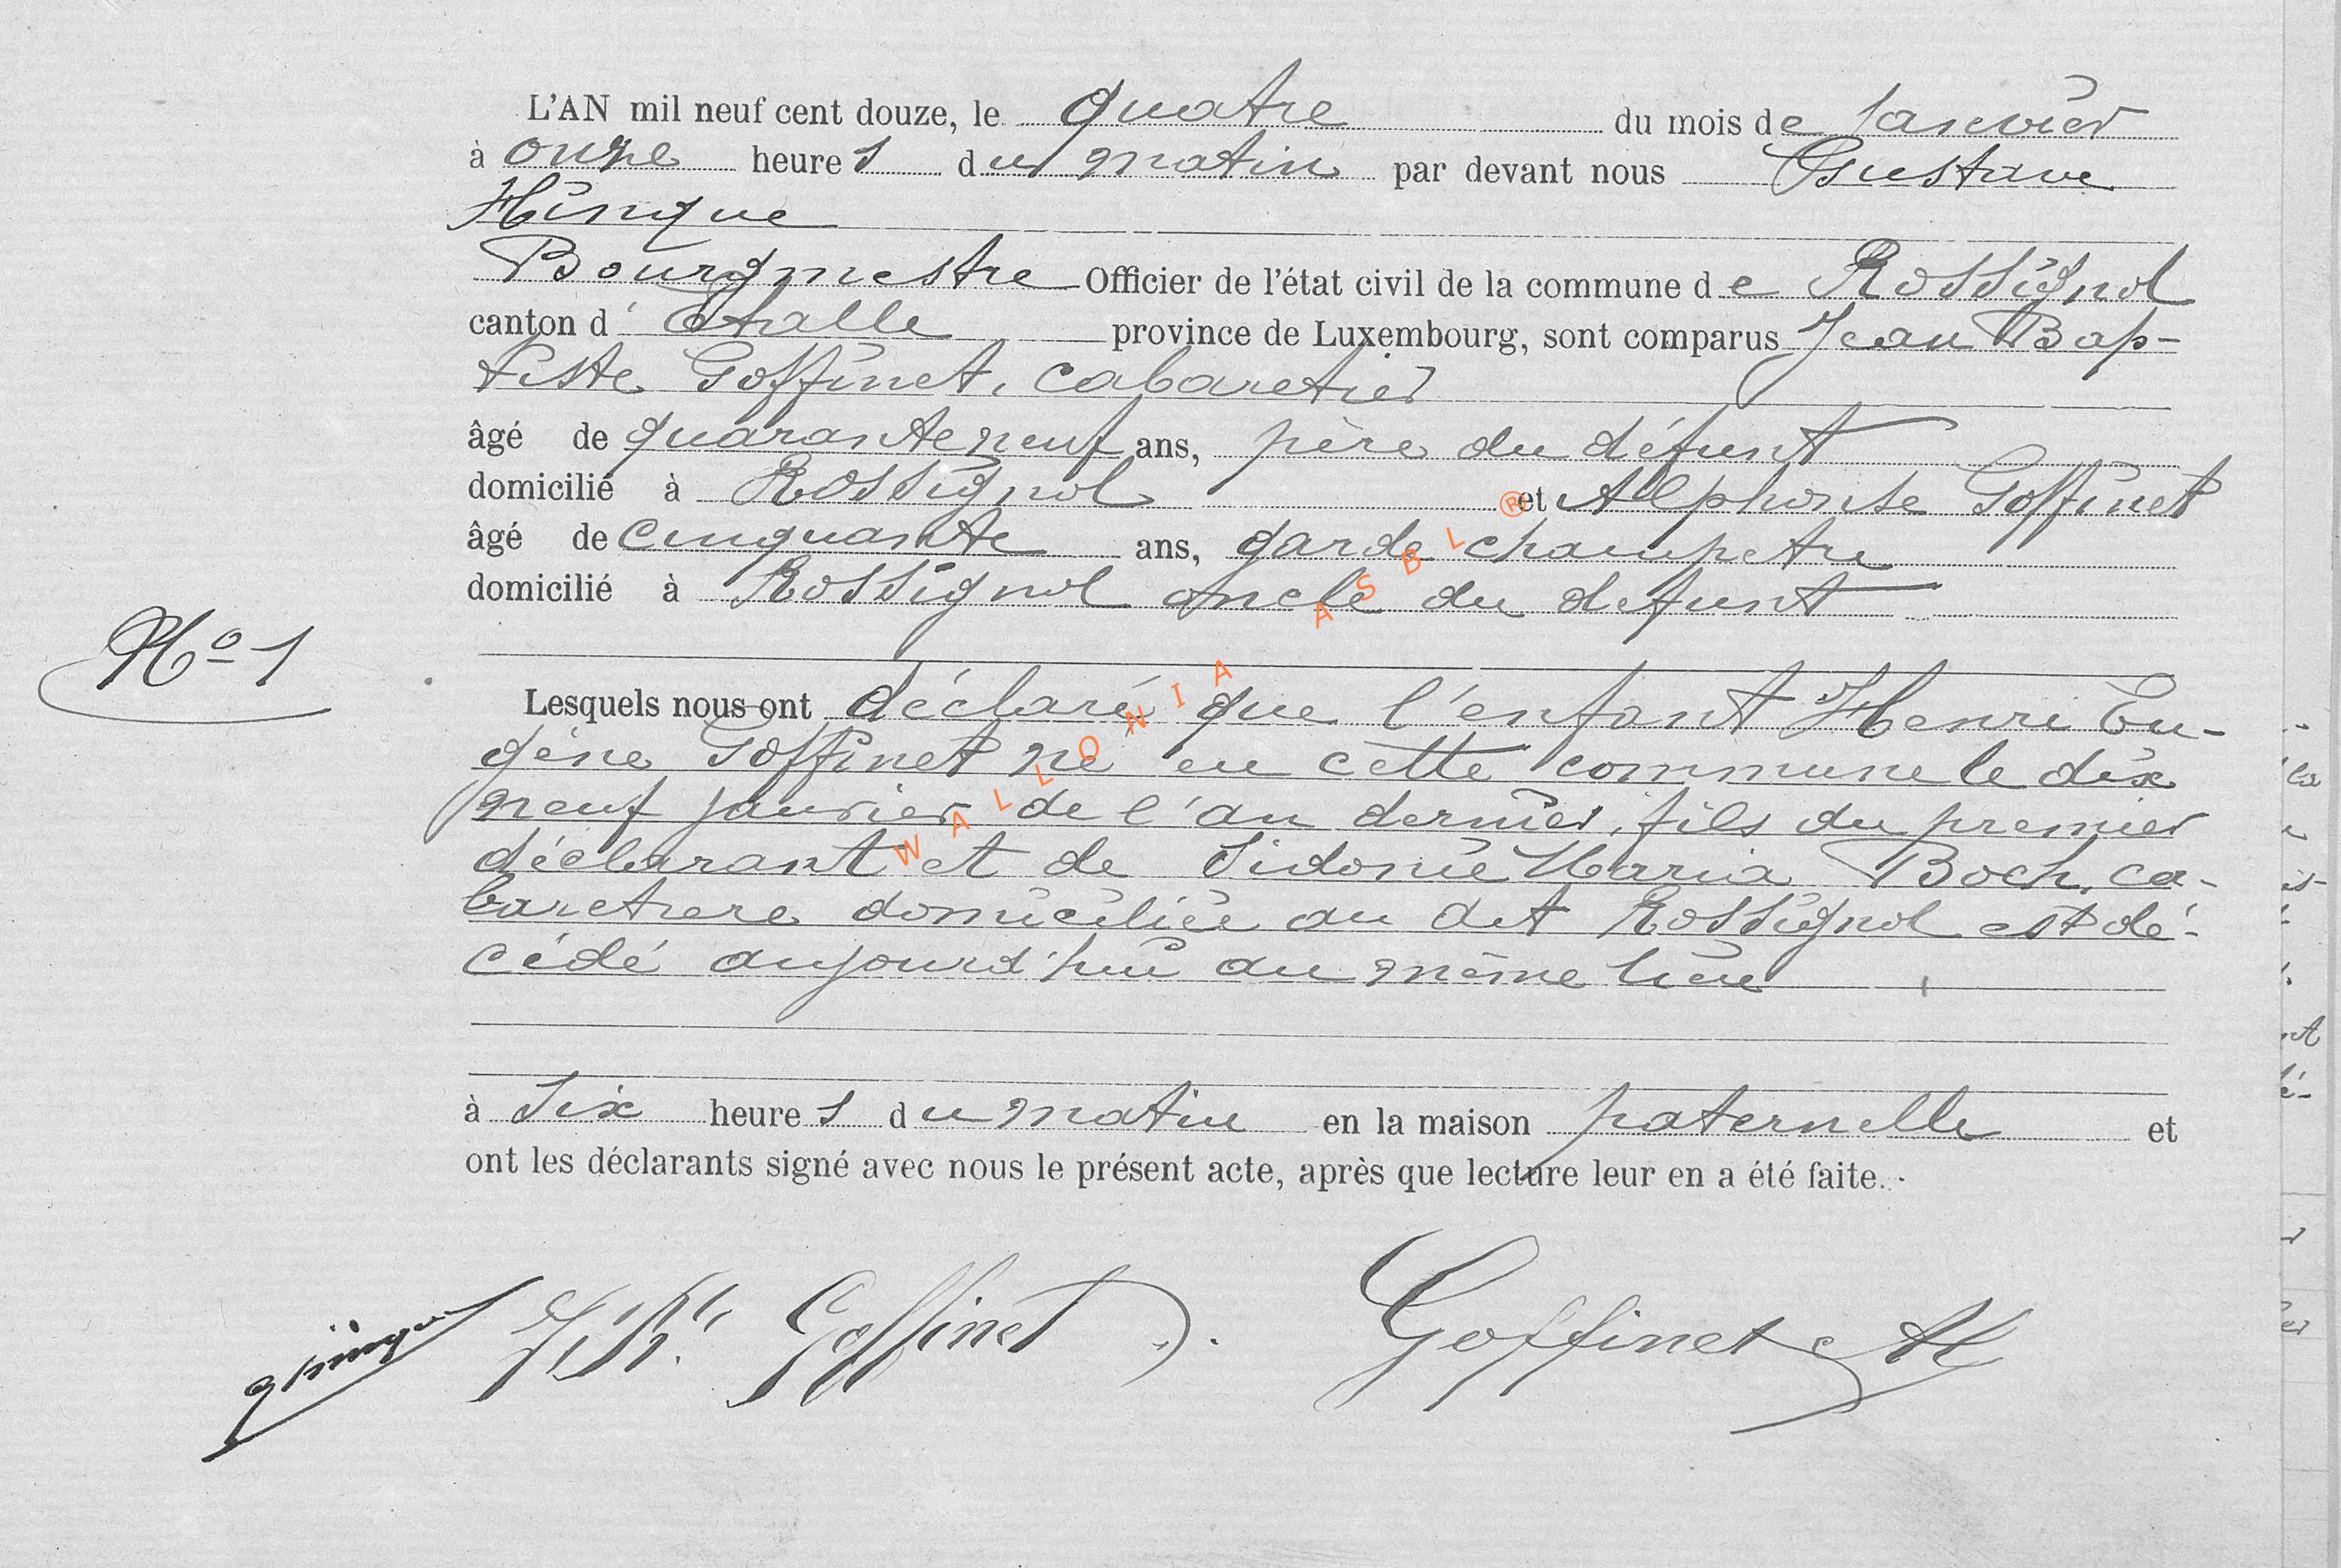 L'AN mil neuf cent douze, le quatre du mois de Janvier
à onze heures du matin par devant nous Gustave
Hinque
Bourgmestre Officier de l'état civil de la commune de Rossignol
canton d'Etalle province de Luxembourg, sont comparus Jean Bap-
tiste Goffinet, cabaretier
âgé de quarante neuf ans, père du défunt
domicilié à Rossignol et Alphonse Goffinet
âgé de cinquante ans, garde champetre
domicilié à Rossignol oncle du defunt
No 1
Lesquels nous ont déclaré que l'enfant Henri Eu-
gène Goffinet né en cette commune le dix
neuf janvier de l'an dernier, fils du premier
déclarant et de Sidonie Maria Boch, ca-
baretiere domiciliée au dit Rossignol est dé-
cédé aujourd'hui au même lieu
à Six heures du matin en la maison paternelle et
ont les déclarants signé avec nous le présent acte, après que lecture leur en a été faite.
GHinque J.Bte Goffinet Goffinet Al
WALLONIA ASBL ®